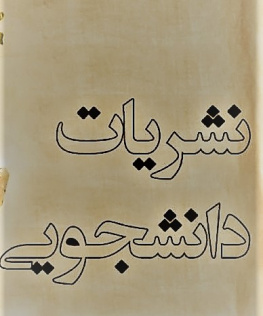 نشریات
دانشجویی